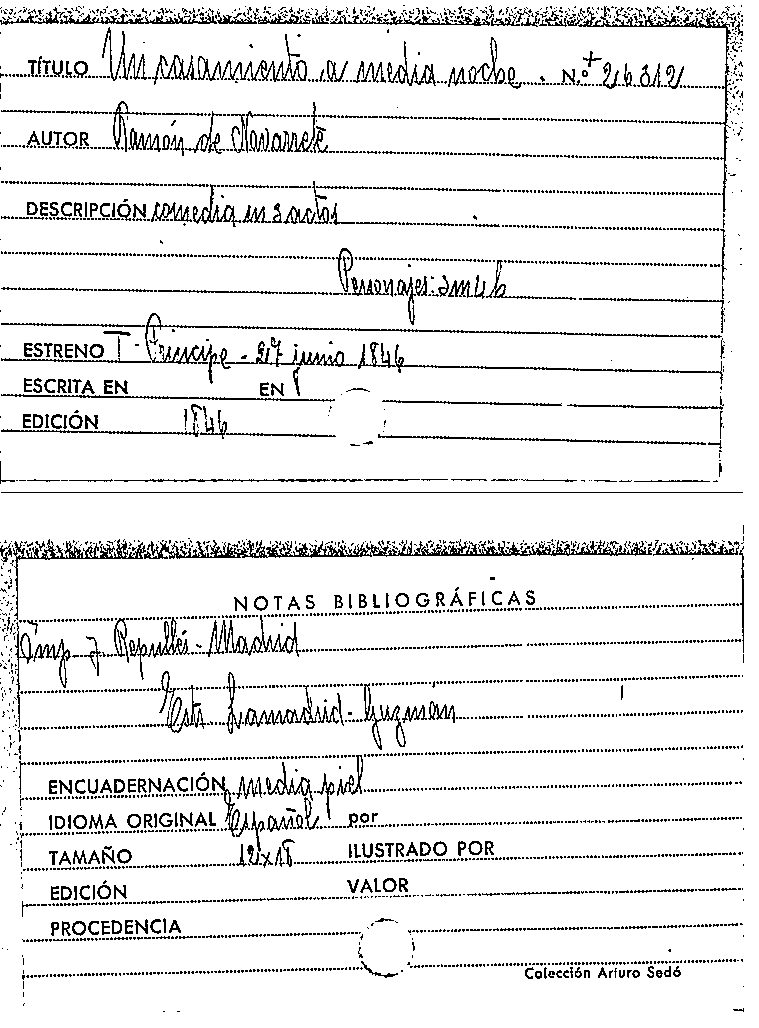 TÍTULO Un casamiento a media noche. N.º + 26312
AUTOR Ramón de Navarrete
DESCRIPCIÓN comedia en 3 actos
Personajes: 3m 4h
ESTRENO T- Príncipe - 27 junio 1846
ESCRITA EN EN
EDICIÓN 1846
NOTAS BIBLIOGRÁFICAS
Imp J Repullés - Madrid
Estr Lamadrid - Guzmán
ENCUADERNACIÓN media piel
IDIOMA ORIGINAL Español por
TAMAÑO 12x18 ILUSTRADO POR
EDICIÓN VALOR
PROCEDENCIA
Colección Arturo Sedó